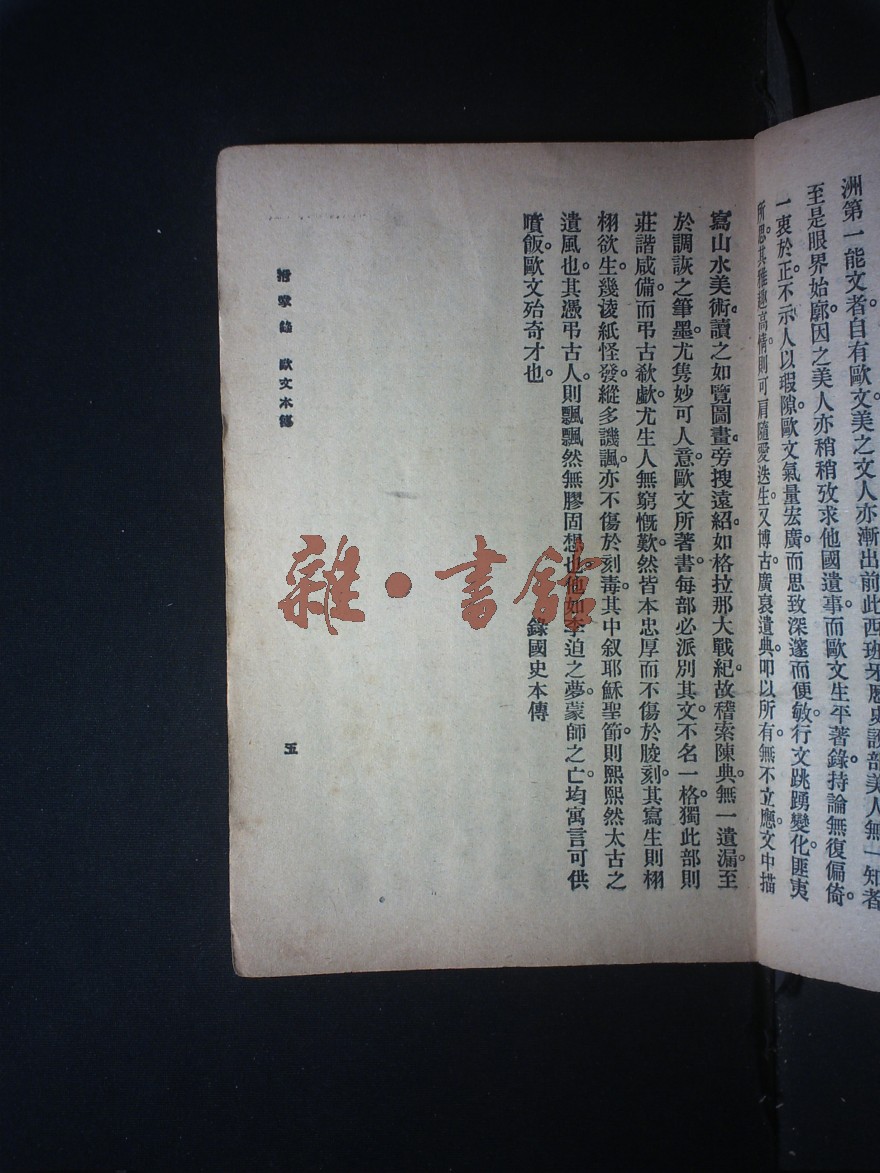 洲第一能文者自有歐文美之文人亦漸出前此西班牙歷史說部美人無一知者
至是眼界始廓。因之美人亦稍稍攷求他國遺事。而歐文生平著錄持論無復偏倚。
一衷於正。不示人以瑕隙。歐文氣量宏廣。而思致深邃而便敏。行文跳踴變化匪夷
所思。其雅趣高情。則可肩隨愛迭生。又博古廣裒遺典。叩以所有。無不立應。文中描
寫山水美術。讀之如覽圖畫。旁搜遠紹。如格拉那大戰紀。故稽索陳典。無一遺漏。至
於調詼之筆墨。尤雋妙可人意。歐文所著書。每部必派別其文。不名一格。獨此部則
莊諧咸備。而弔古欷歔。尤生人無窮慨歎。然皆本忠厚而不傷於朘刻。其寫生則栩
栩欲生。幾淩紙怪發。縱多譏諷。亦不傷於刻毒。其中叙耶穌聖節。則熙熙然太古之
遺風也。其憑弔古人。則飄飄然無膠固想也。他如李迫之夢。蒙師之亡。均寓言可供
噴飯。歐文殆奇才也。
錄國史本傳
拊掌錄 歐文本傳
五
雜·書館